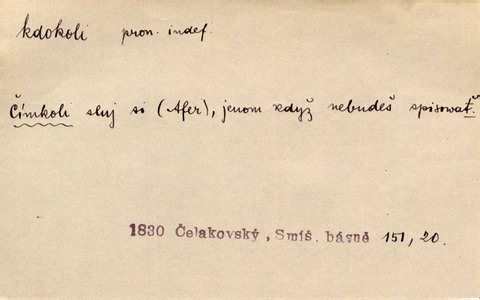 kdokoli pron. indef.
Čímkoli sluj si (Afer), jenom když nebudeš spisovať.
1830 Čelakovský, Smíš. básně 151, 20.